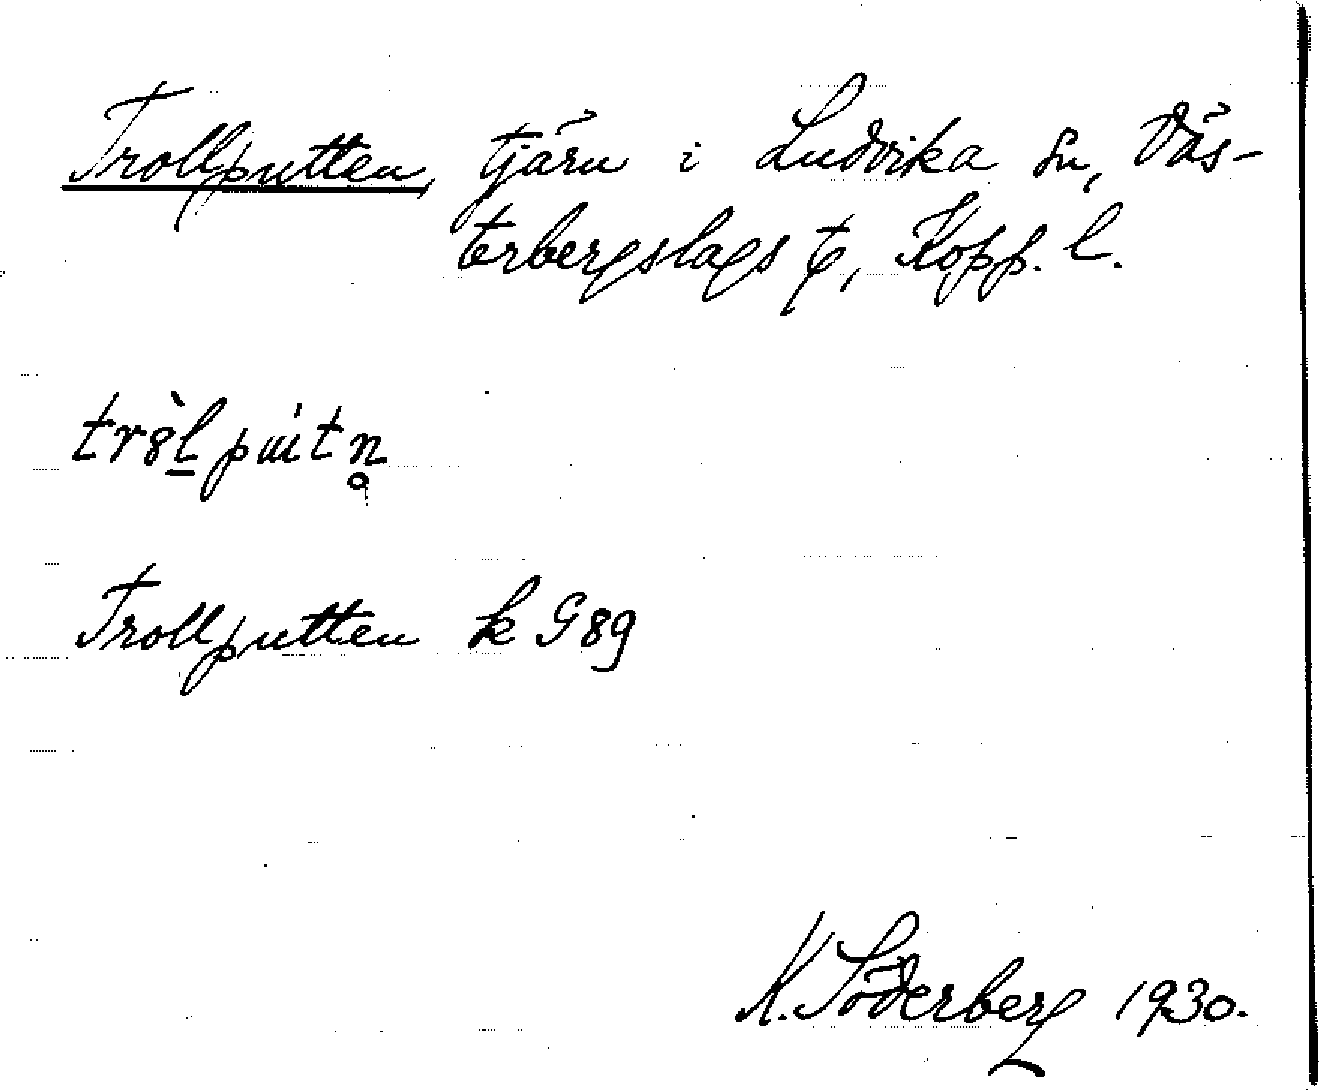 Trollputten, tjärn i Ludvika sn, Väs-
terbergslags t, Kopp. l.
tr8̀l̲pɯ́tn̥
Trollputten k G89
K. Söderberg 1930.